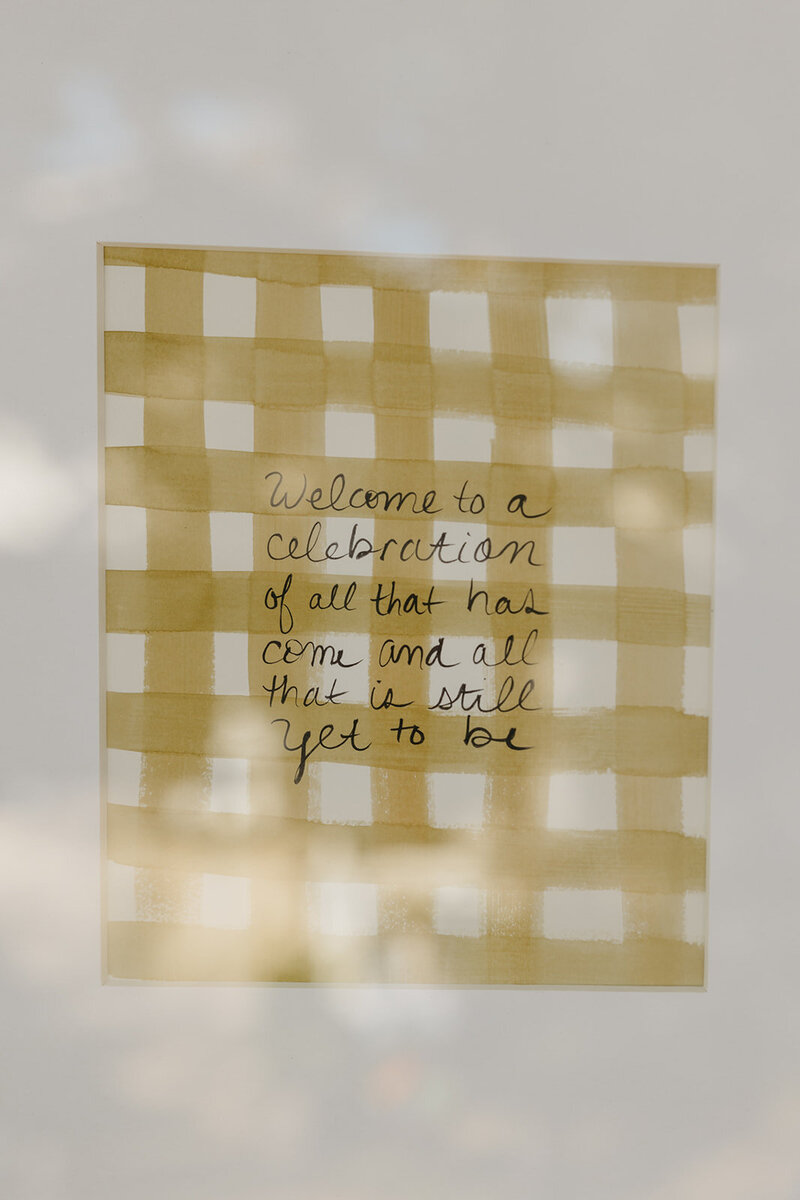 Welcome to a
celebration
of all that has
come and all
that is still
yet to be